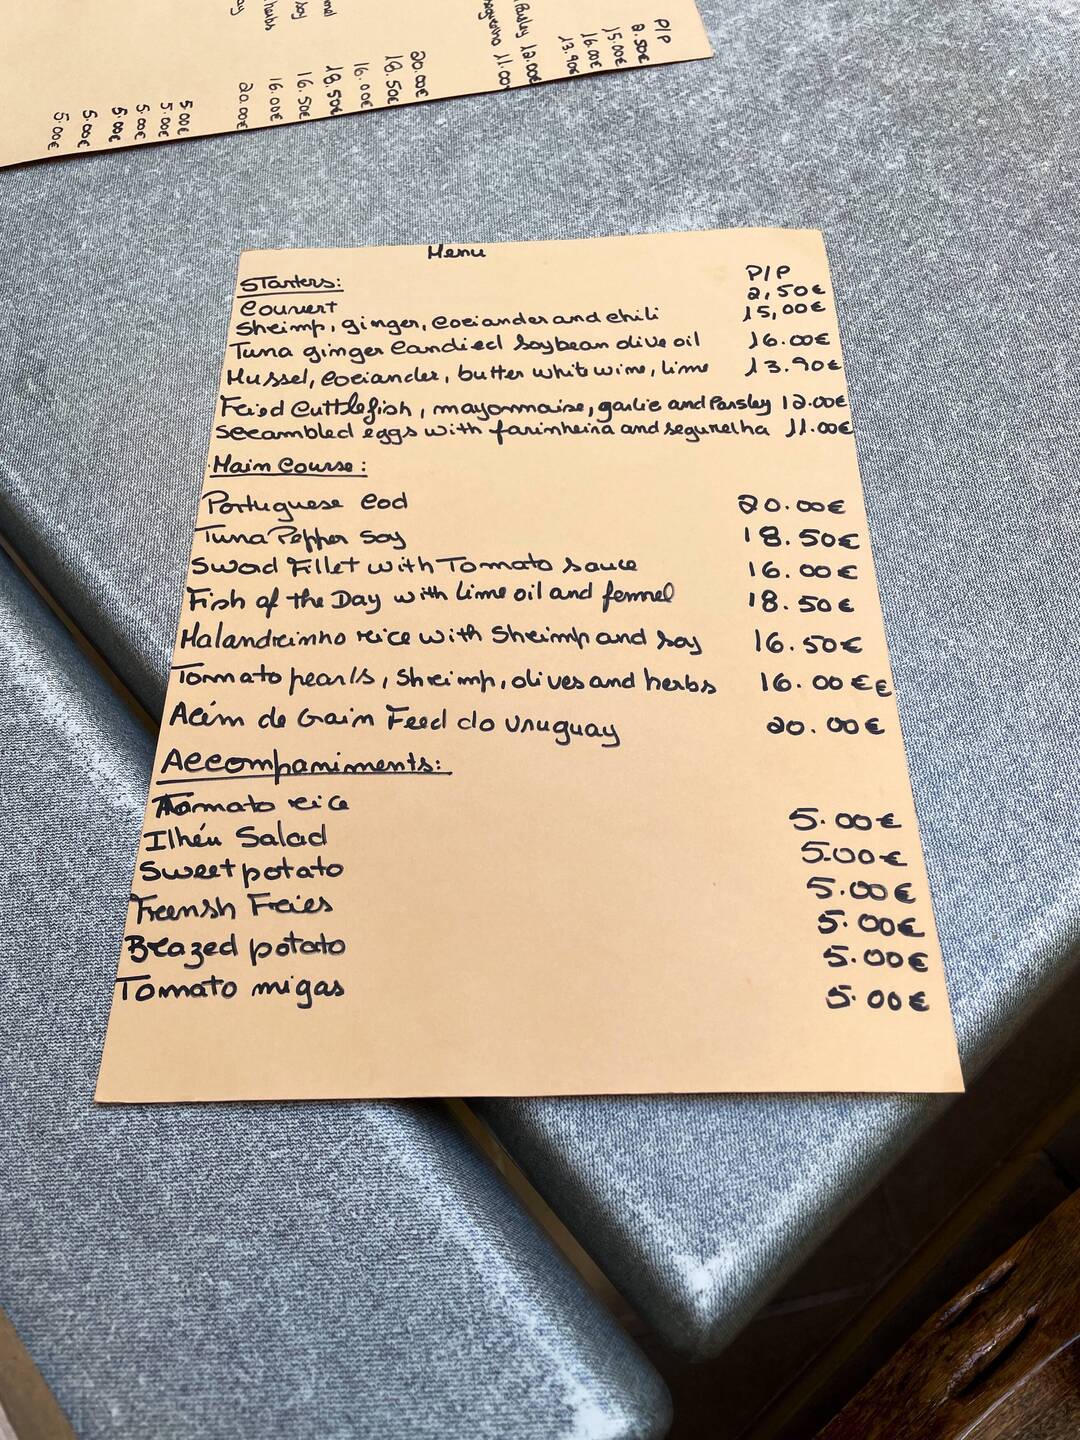 Parsley 12.00€
segurelha 11.00€
P/P
2.50€
15.00€
16.00€
13.90€
soy
herbs
20.00€
18.50€
16.00€
18.50€
16.50€
16.00€
20.00€
5.00€
5.00€
5.00€
5.00€
5.00€
5.00€
Menu
Starters: P/P
Couvert 2,50€
Shrimp, ginger, coriander and chili 15,00€
Tuna ginger Candied soybean olive oil 16.00€
Mussel, coriander, butter white wine, lime 13.90€
Fried Cuttlefish, mayonnaise, garlic and Parsley 12.00€
Scrambled eggs with farinheira and segurelha 11.00€
Main Course:
Portuguese Cod 20.00€
Tuna Pepper Soy 18.50€
Sword Fillet with Tomato sauce 16.00€
Fish of the Day with lime oil and fennel 18.50€
Malandrinho rice with Shrimp and soy 16.50€
Tomato pearls, Shrimp, olives and herbs 16.00€€
Acém de Grain Feed do Uruguay 20.00€
Accompaniments:
Tomato rice 5.00€
Ilhéu Salad 5.00€
Sweet potato 5.00€
Frensh Fries 5.00€
Brazed potato 5.00€
Tomato migas 5.00€